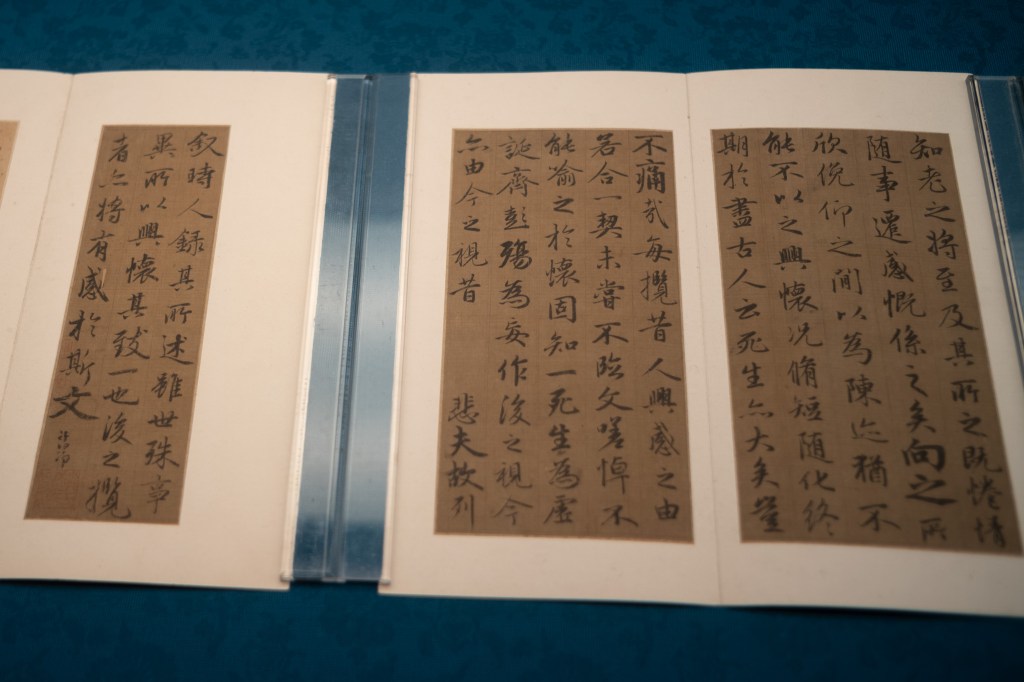 知老之將至及其所之既惓情
隨事遷感慨係之矣向之所
欣俛仰之間以為陳迹猶不
能不以之興懷况脩短隨化終
期於盡古人云死生亦大矣豈
不痛哉每攬昔人興感之由
若合一契未嘗不臨文嗟悼不
能喻之於懷固知一死生為虛
誕齊彭殤為妄作後之視今
亦由今之視昔 悲夫故列
叙時人錄其所述雖世殊事
異所以興懷其致一也後之攬
者亦將有感於斯文